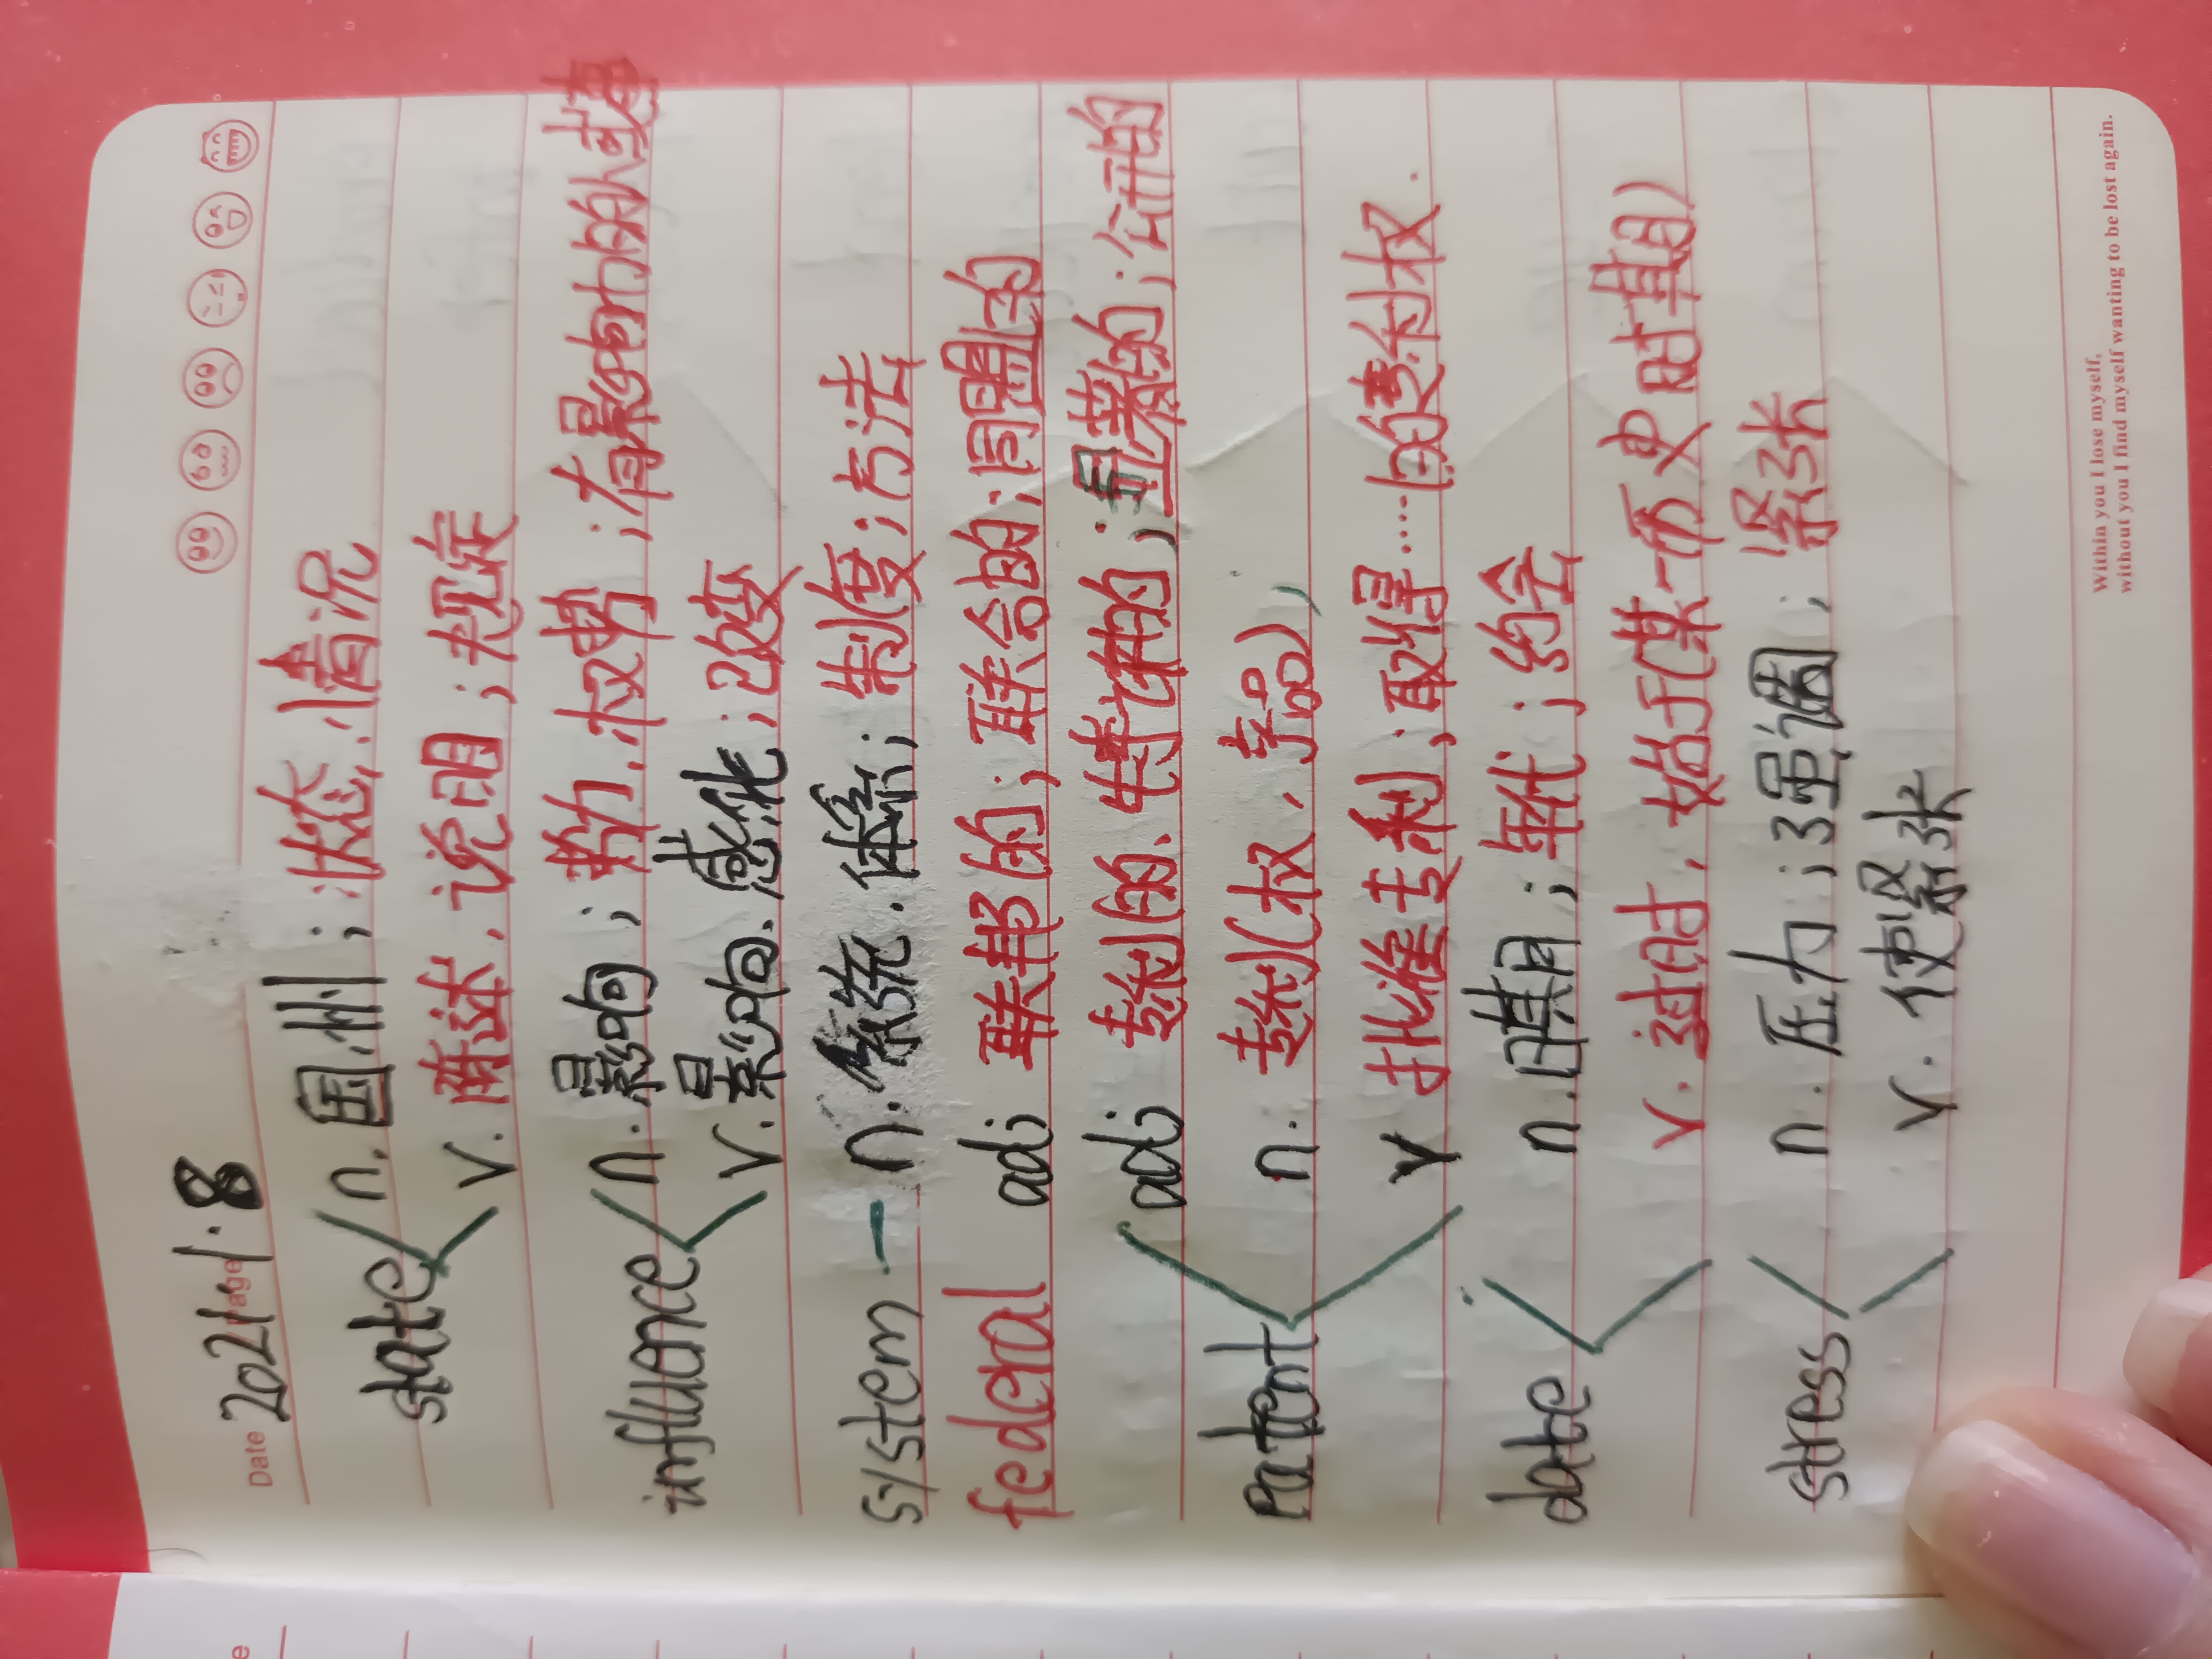 Date 2021.1.8 Page
state n. 国, 州; 状态, 情况
v. 陈述, 说明; 规定
influence n. 影响; 势力, 权势; 有影响力的人或事
v. 影响、感化; 改变
system — n. 系统. 体系; 制度; 方法
federal adj 联邦的; 联合的; 同盟的
adj 专利的、特许的; 显著的; 公布的
Patent n. 专利(权、品)
v 批准专利; 取得……的专利权.
date n. 日期; 年代; 约会
v. 过时, 始于(某一历史时期)
stress n. 压力; 强调; 紧张
v. 使紧张
Within you I lose myself,
without you I find myself wanting to be lost again.
e